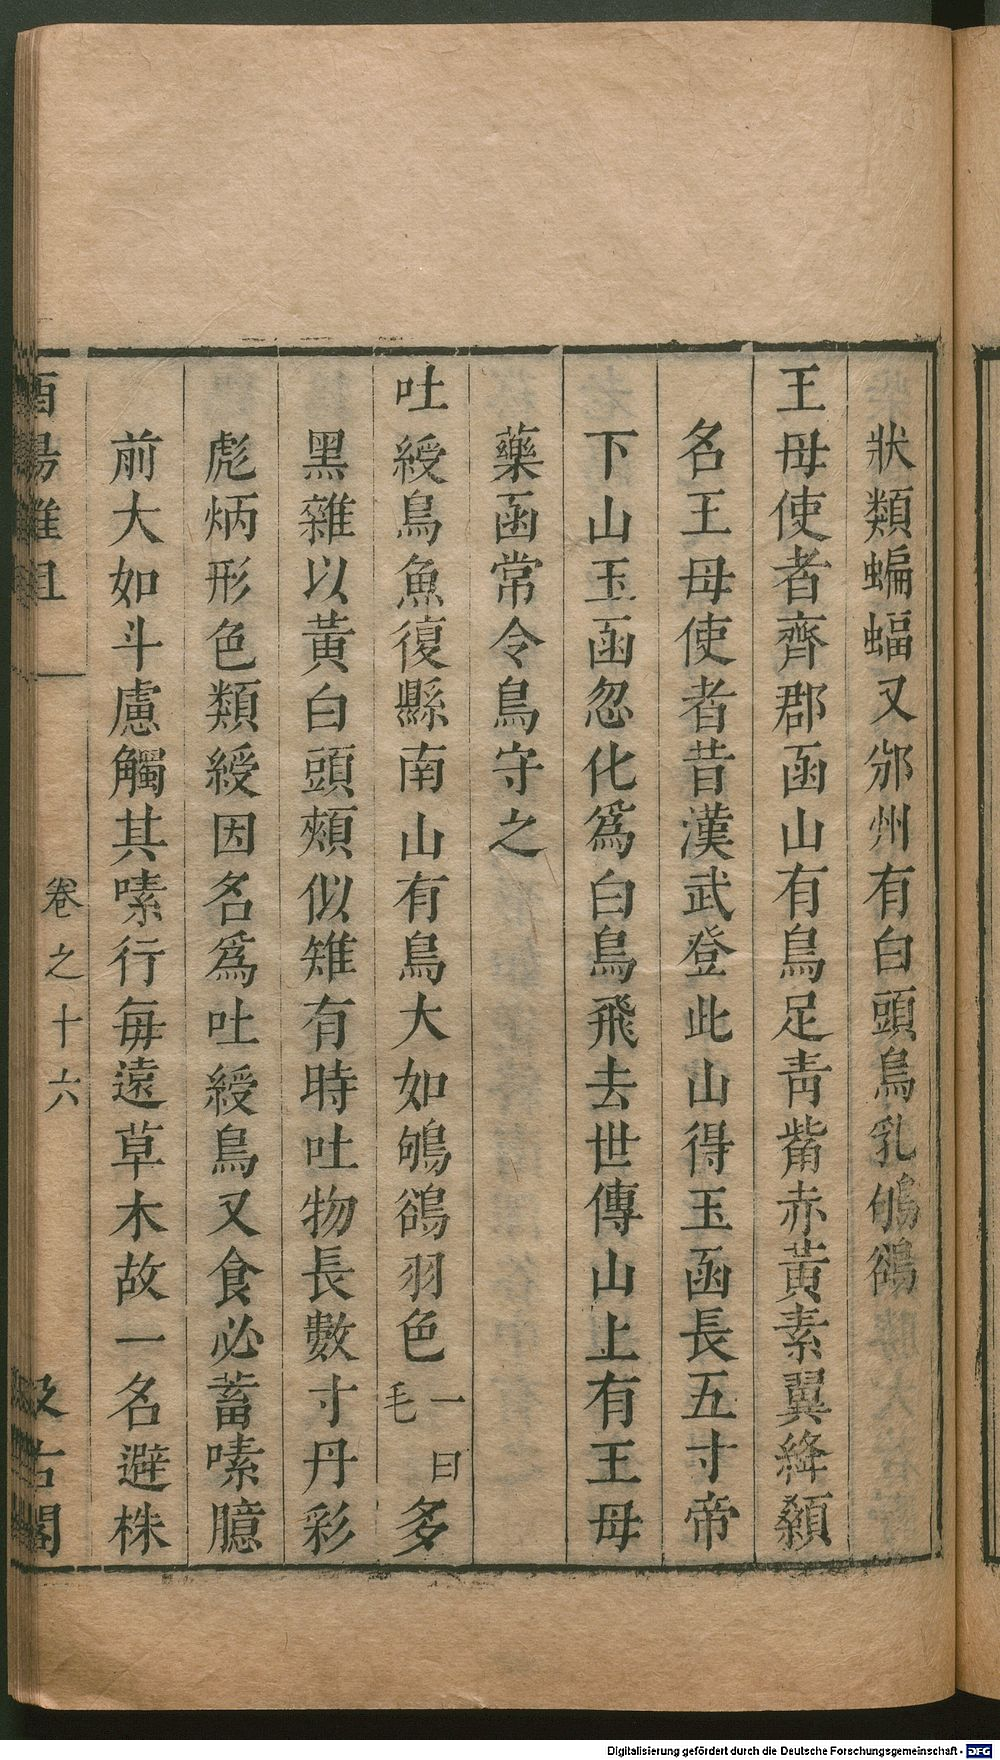 狀類蝙蝠又邠州有白頭烏乳鴝鵒
王母使者齊郡函山有鳥足青觜赤黃素翼絳顙
名王母使者昔漢武登此山得玉函長五寸帝
下山玉函忽化爲白鳥飛去世傳山上有王母
藥函常令鳥守之
吐綬鳥魚復縣南山有鳥大如鴝鵒羽色一曰毛多
黑雜以黃白頭頰似雉有時吐物長數寸丹彩
彪炳形色類綬因名爲吐綬鳥又食必蓄嗉臆
前大如斗慮觸其嗉行每遠草木故一名避株
酉陽雜俎 卷之十六 汲古閣
Digitalisierung gefördert durch die Deutsche Forschungsgemeinschaft - DFG